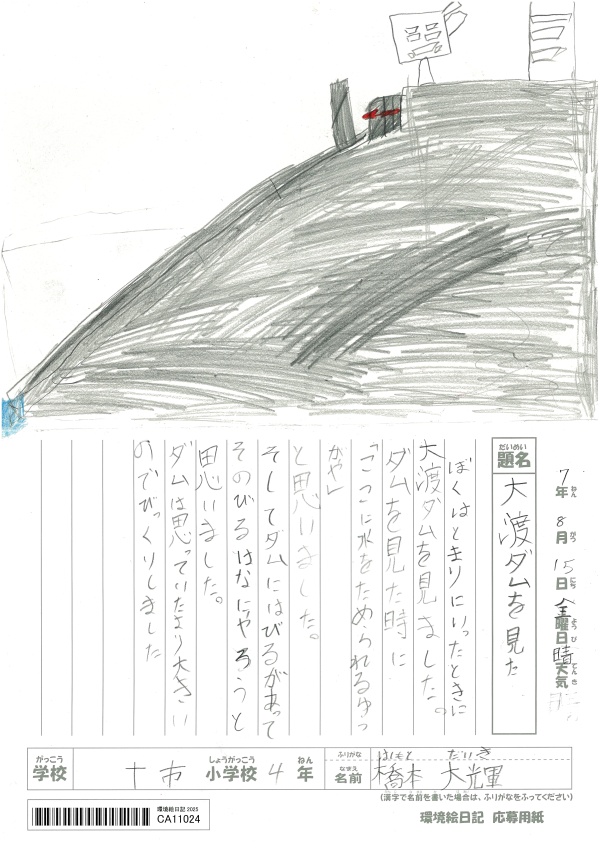 7年 8月 15日 金曜日 天気 晴
題名 大渡ダムを見た
ぼくはとまりにいったときに
大渡ダムを見ました。
ダムを見た時に
「ここに水をためられるゆっ
かや」
と思いました。
そしてダムにはびるがあって
そのびるはなにやろうと
思いました。
ダムは思っていたより大きい
のでびっくりしました
学校 十市 小学校 4年
ふりがな はしもと だいき
名前 橋本 大輝
(漢字で名前を書いた場合は、ふりがなをふってください)
環境絵日記 2025
CA11024
環境絵日記 応募用紙